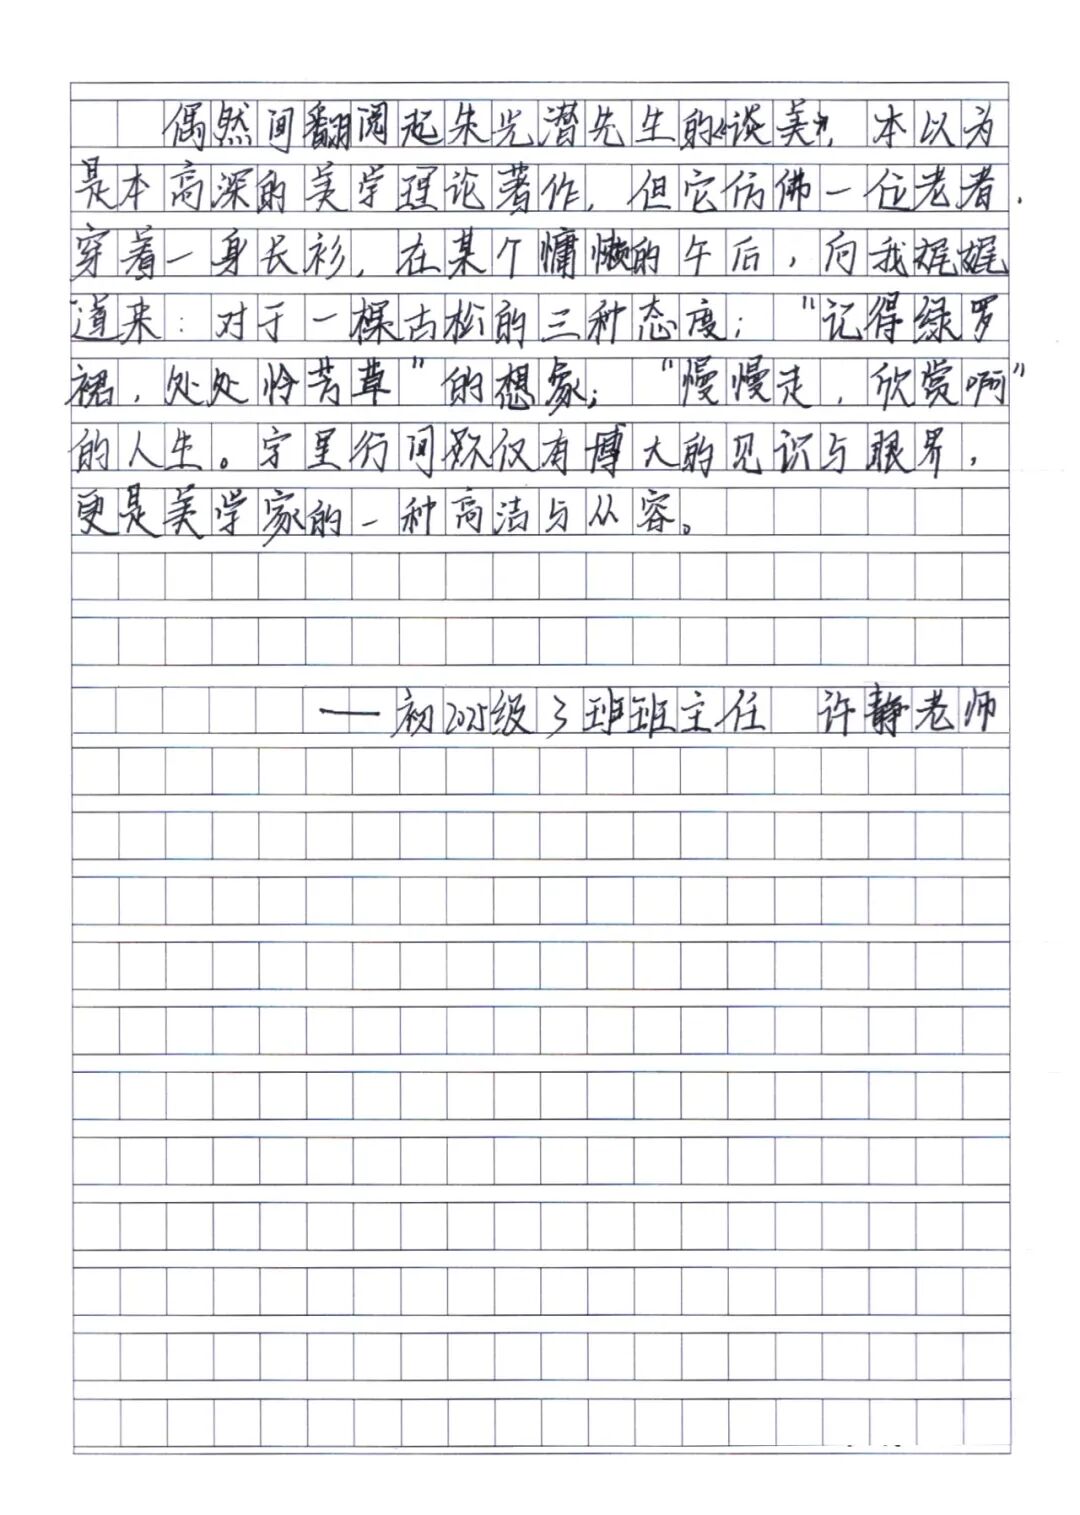 偶然间翻阅起朱光潜先生的《谈美》，本以为
是本高深的美学理论著作，但它仿佛一位老者，
穿着一身长衫，在某个慵懒的午后，向我娓娓
道来：对于一棵古松的三种态度；“记得绿罗
裙，处处怜芳草”的想象；“慢慢走，欣赏啊”
的人生。字里行间不仅有博大的见识与眼界，
更是美学家的一种高洁与从容。
——初2025级3班班主任 许静老师